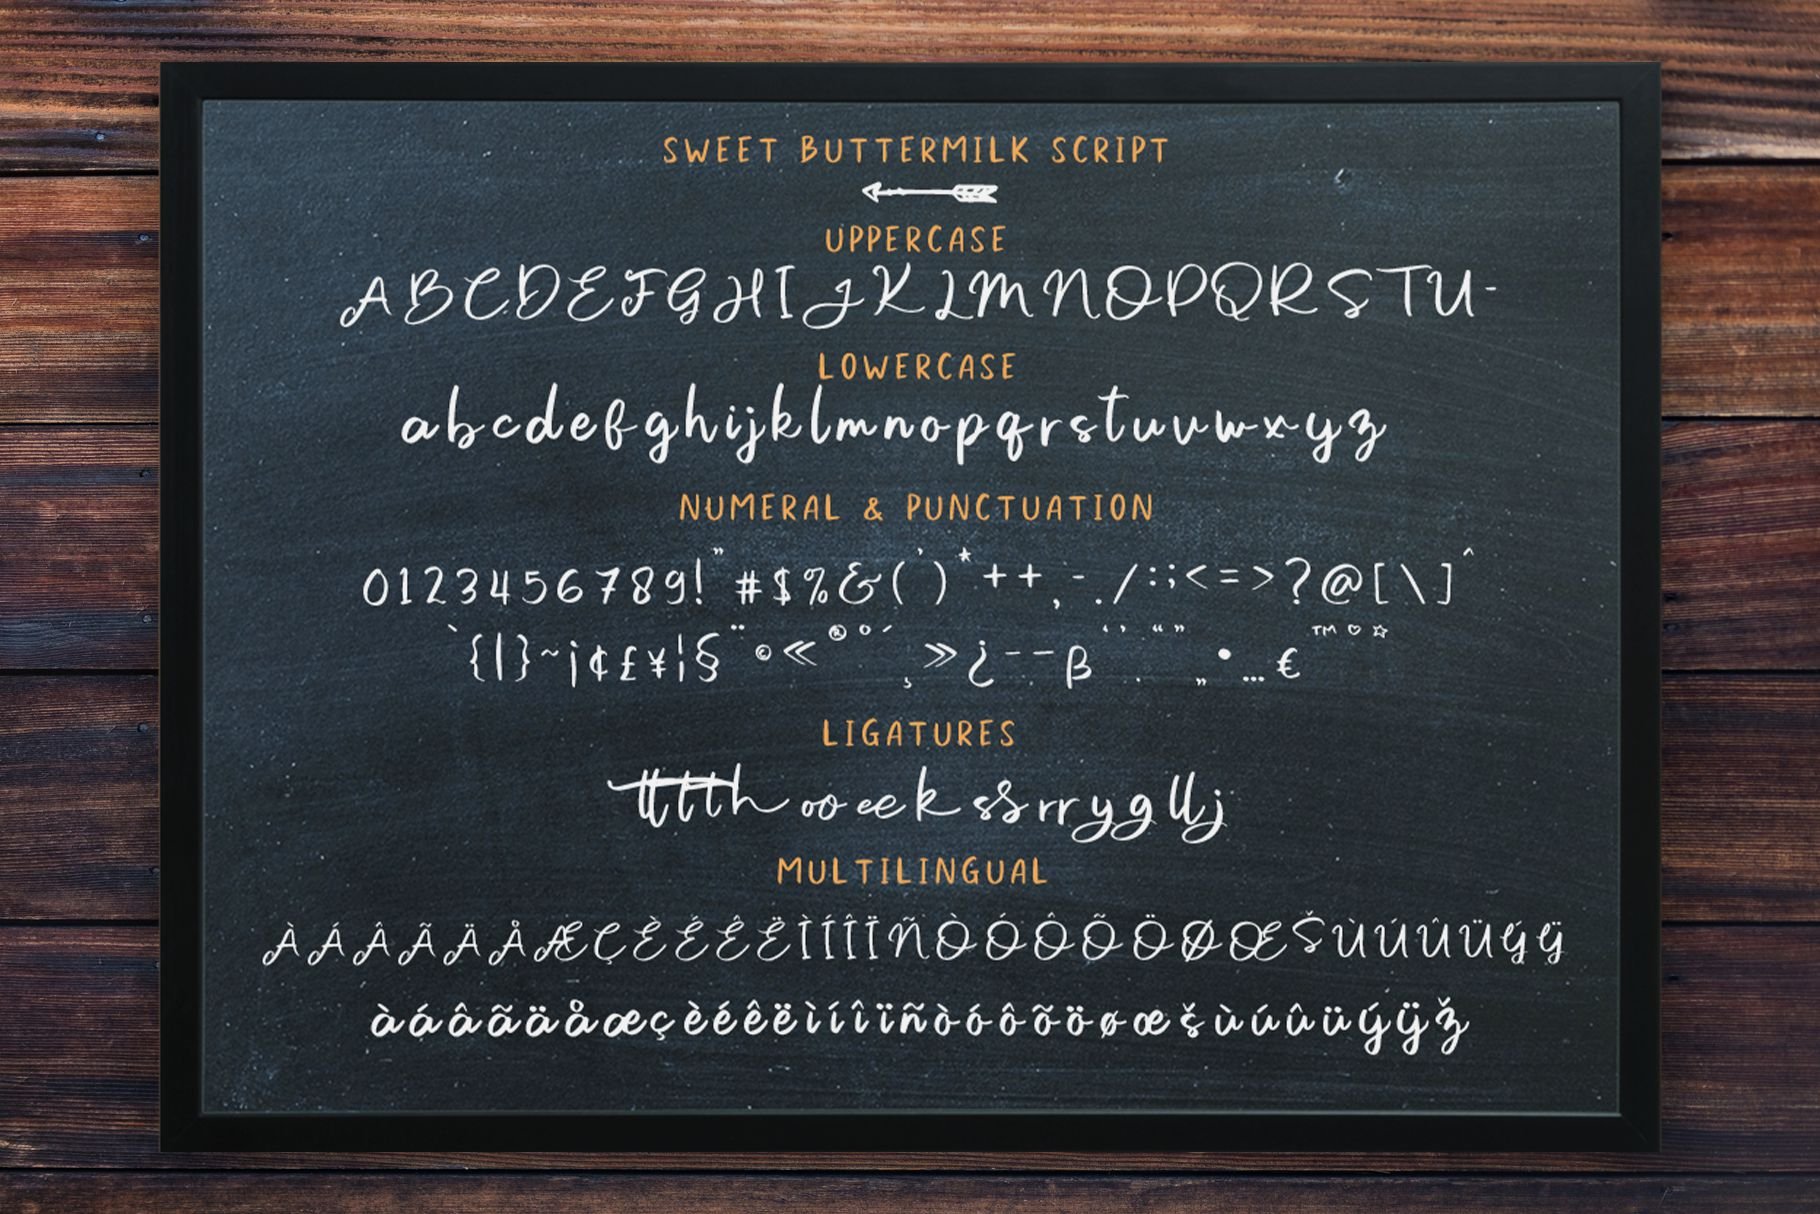 SWEET BUTTERMILK SCRIPT
UPPERCASE
ABCDEFGHIJKLMNOPQRSTU-
LOWERCASE
abcdefghijklmnopqrstuvwxyz
NUMERAL & PUNCTUATION
0123456789!"#$%&(')*++,-./:;<=>?@[\]^
`{|}~¡¢£¥¦§¨©≪®°´¸≫¿--β‘’“”„•…€™♡☆
LIGATURES
tt t t th oo ee k ss rr y g ll j
MULTILINGUAL
ÀÁÂÃÄÅÆÇÈÉÊËÌÍÎÏÑÒÓÔÕÖØŒŠÙÚÛÜÝŸ
àáâãäåæçèéêëìíîïñòóôõöøœšùúûüýÿž